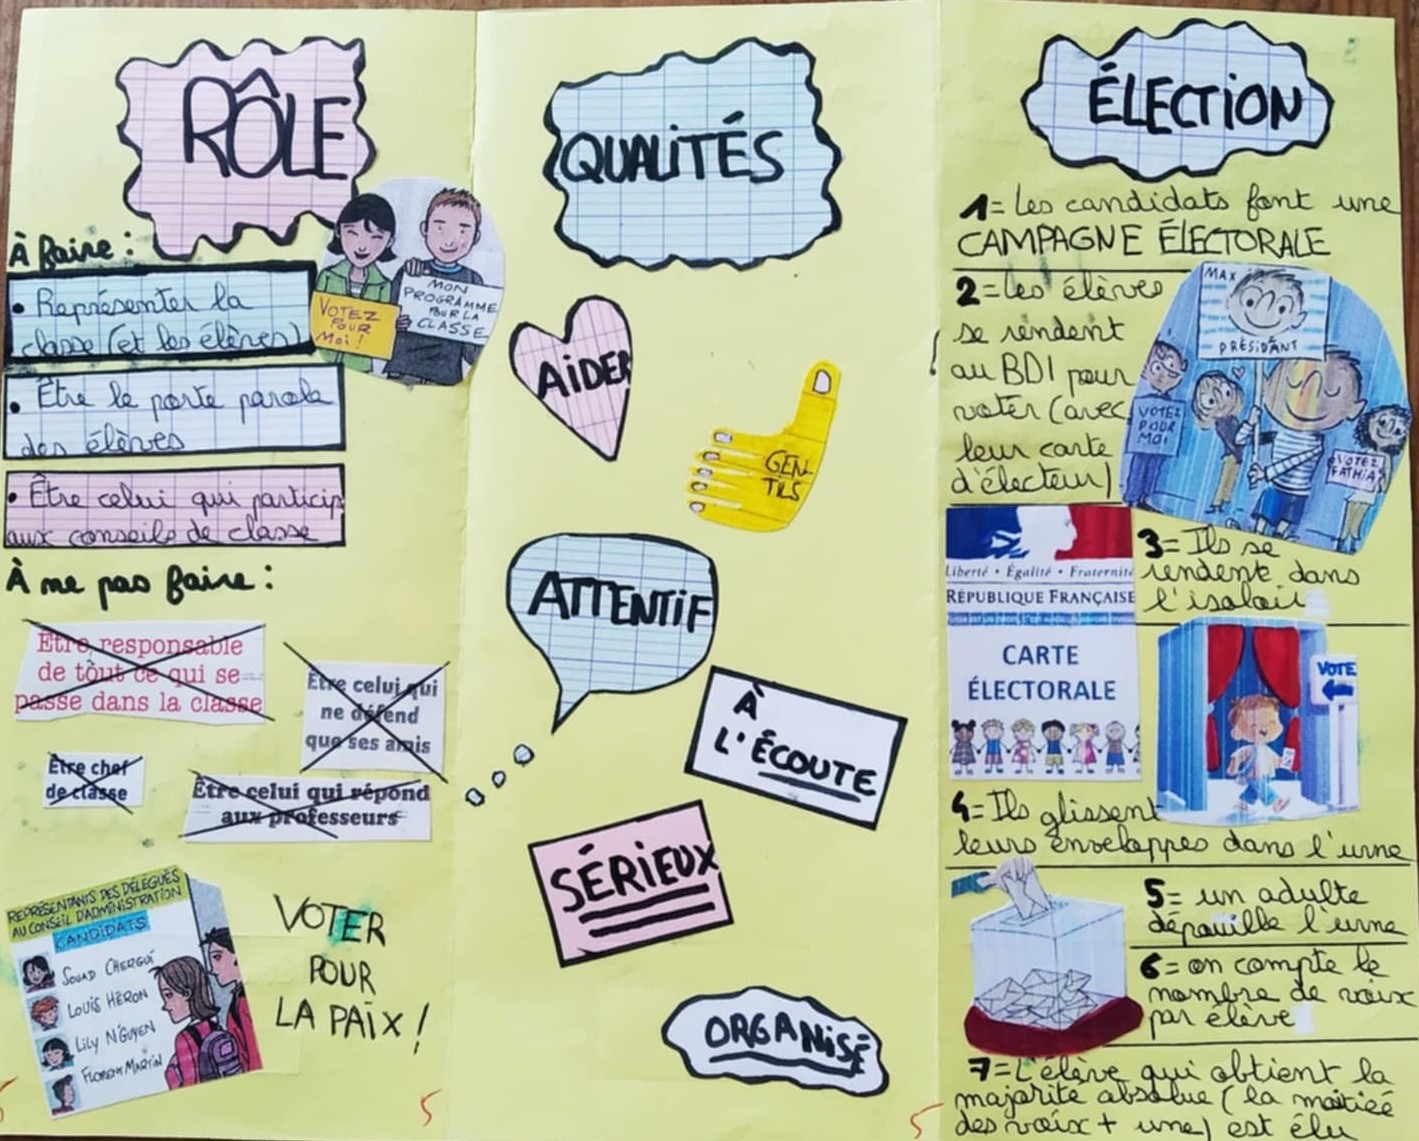 RÔLE
À faire :
• Représenter la
classe (et les élèves)
• Être le porte parole
des élèves
• Être celui qui particip
aux conseils de classe
VOTEZ
POUR
MOi !
MON
PROGRAMME
POUR LA
CLASSE
À ne pas faire :
Etre responsable
de tout ce qui se
passe dans la classe
Être celui qui
ne défend
que ses amis
Être chef
de classe
Être celui qui répond
aux professeurs
REPRÉSENTANTS DES DÉLÉGUÉS
AU CONSEIL D'ADMINISTRATION
CANDIDATS
SOUAD CHERGUI
LOUIS HÉRON
LILY N'GUYEN
FLORENT MARTIN
VOTER
POUR
LA PAiX !
5
QUALiTÉS
AiDER
GEN-
TiLS
ATTENTiF
À
L'ÉCOUTE
SÉRiEUX
ORGANiSÉ
5
ÉLECTiON
1= Les candidats font une
CAMPAGNE ÉLECTORALE
2= Les élèves
se rendent
au BDI pour
voter (avec
leur carte
d'électeur)
MAX
PRÉSIDANT
VOTEZ
POUR
MOI
VOTEZ
FATHIA
Liberté • Égalité • Fraternité
RÉPUBLIQUE FRANÇAISE
CARTE
ÉLECTORALE
3= Ils se
rendent dans
l'isoloir
VOTE
4= Ils glissent
leurs enveloppes dans l'urne
5= un adulte
dépouille l'urne
6= on compte le
nombre de voix
par élève
7= L'élève qui obtient la
majorité absolue (la moitieé
des voix + une) est élu